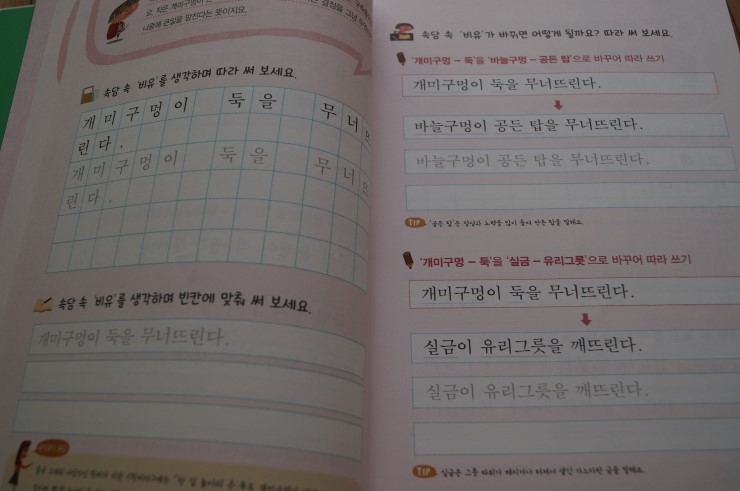 로, 작은 개미구멍이
나중에 큰일을 망친다는 뜻이지요.
결정을 그냥
속담 속 '비유'를 생각하며 따라 써 보세요.
개미구멍이 둑을 무너뜨
린다.
개미구멍이 둑을 무너뜨
린다.
속담 속 '비유'를 생각하며 빈칸에 맞춰 써 보세요.
개미구멍이 둑을 무너뜨린다.
속담 속 '비유'가 바뀌면 어떻게 될까요? 따라 써 보세요.
'개미구멍 – 둑'을 '바늘구멍 – 공든 탑'으로 바꾸어 따라 쓰기
개미구멍이 둑을 무너뜨린다.
바늘구멍이 공든 탑을 무너뜨린다.
바늘구멍이 공든 탑을 무너뜨린다.
TIP '공든 탑'은 정성과 노력을 많이 들여 만든 탑을 말해요.
'개미구멍 – 둑'을 '실금 – 유리그릇'으로 바꾸어 따라 쓰기
개미구멍이 둑을 무너뜨린다.
실금이 유리그릇을 깨뜨린다.
실금이 유리그릇을 깨뜨린다.
TIP 실금은 그릇 따위가 깨지거나 터져서 생긴 가느다란 금을 말해요.